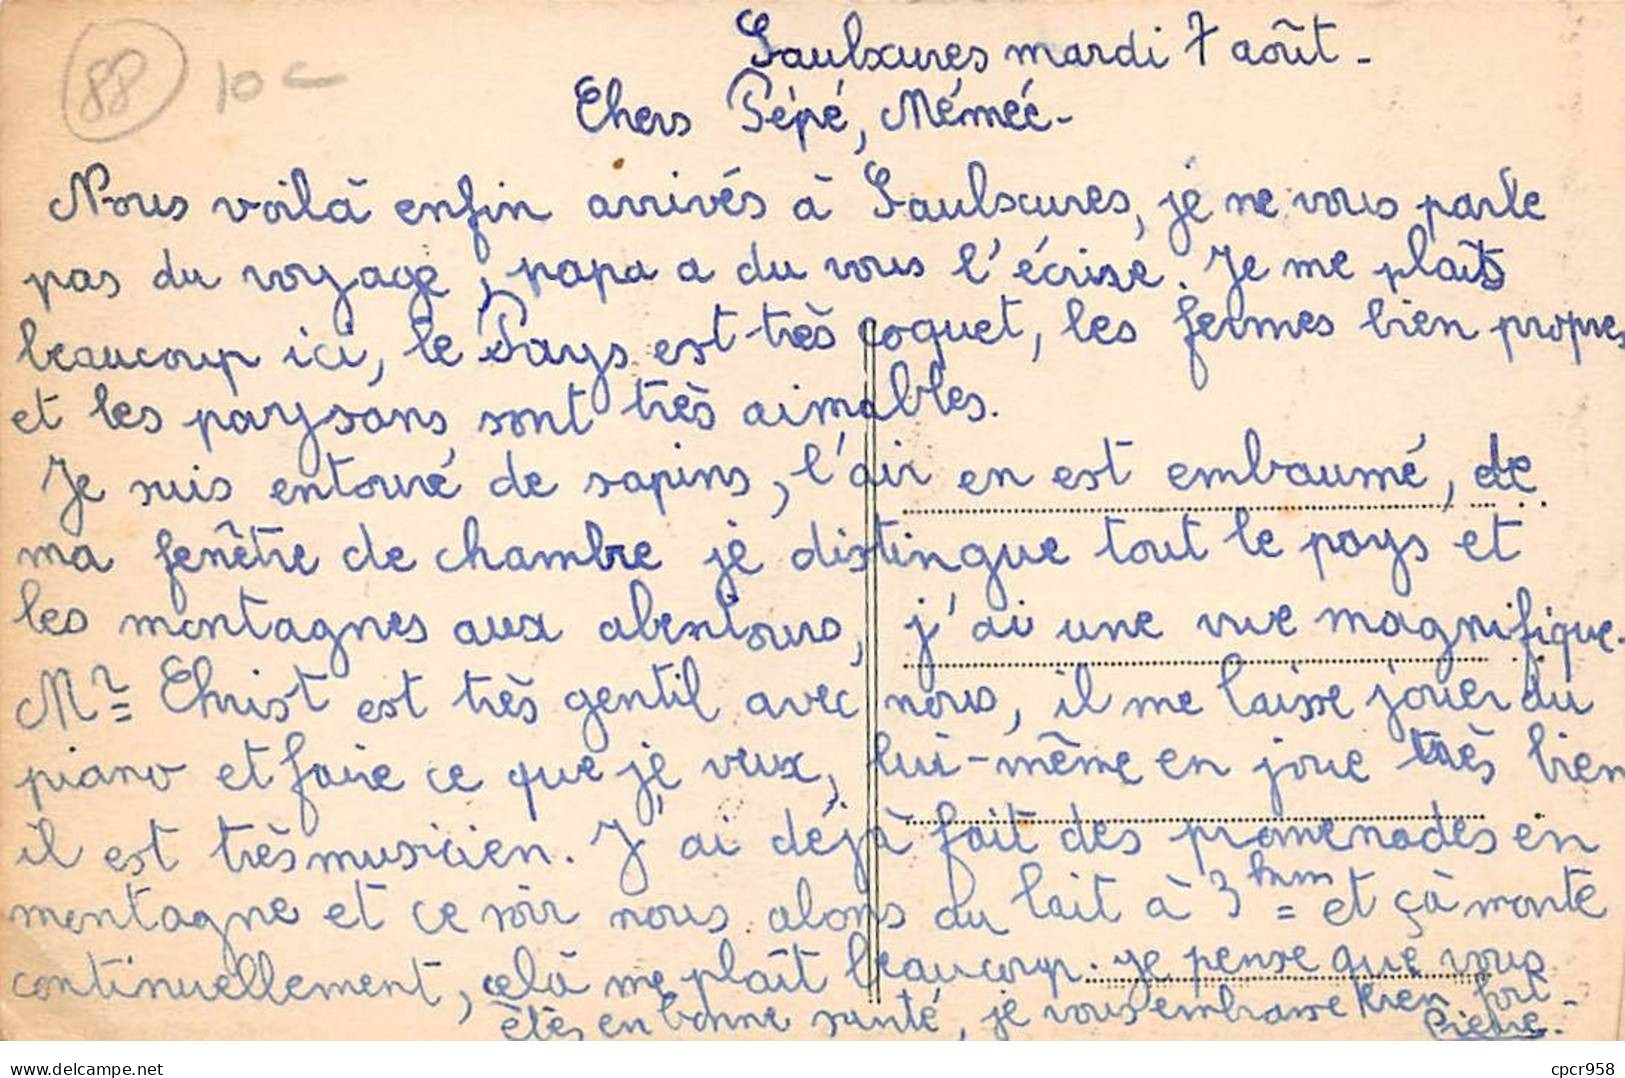 88 10
Saulxures mardi 7 août -
Chers Pépé, Mémée -
Nous voilà enfin arrivés à Saulxures, je ne vous parle
pas du voyage, papa a du vous l'écrire. Je me plaits
beaucoup ici, le Pays est très coquet, les fermes bien propres
et les paysans sont très aimables.
Je suis entouré de sapins, l'air en est embaumé, de
ma fenêtre de chambre je distingue tout le pays et
les montagnes aux alentours, j'ai une vue magnifique.
Mr Christ est très gentil avec nous, il me laisse jouer du
piano et faire ce que je veux, lui-même en joue très bien
il est très musicien. J'ai déjà fait des promenades en
montagne et ce soir nous alons au lait à 3 kms et çà monte
continuellement, celà me plaît beaucoup. je pense que vous
êtes en bonne santé, je vous embrasse bien fort -
Pierre.
Delcampe.net
cpcr958